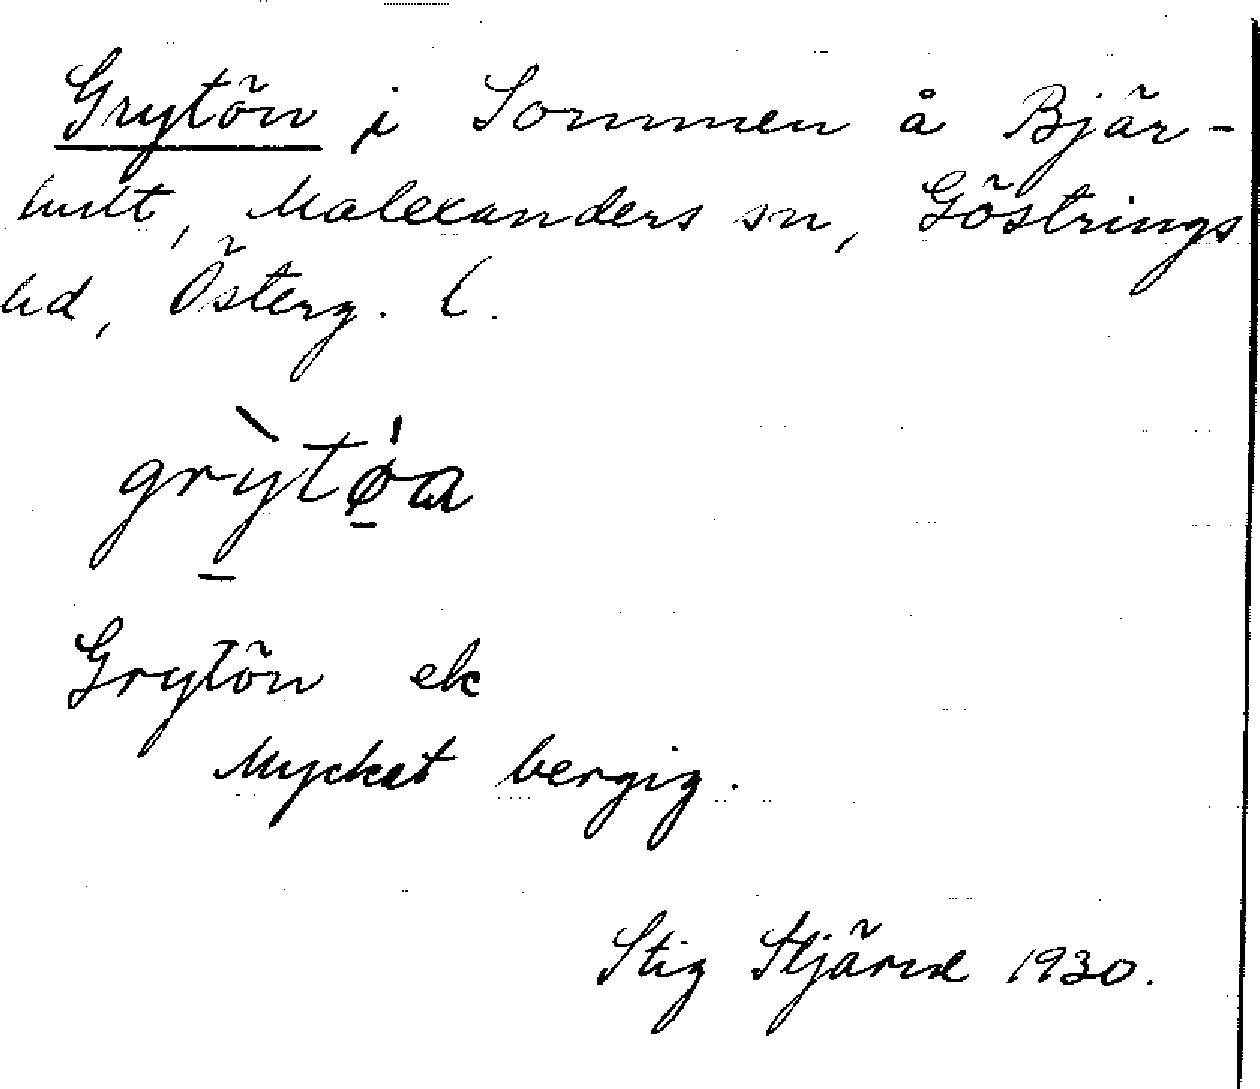 Grytön i Sommen å Bjär-
hult, Malexanders sn, Göstrings
hd, Österg. l.
grỳtø̀a
Grytön ek
Mycket bergig.
Stig Stjärne 1930.